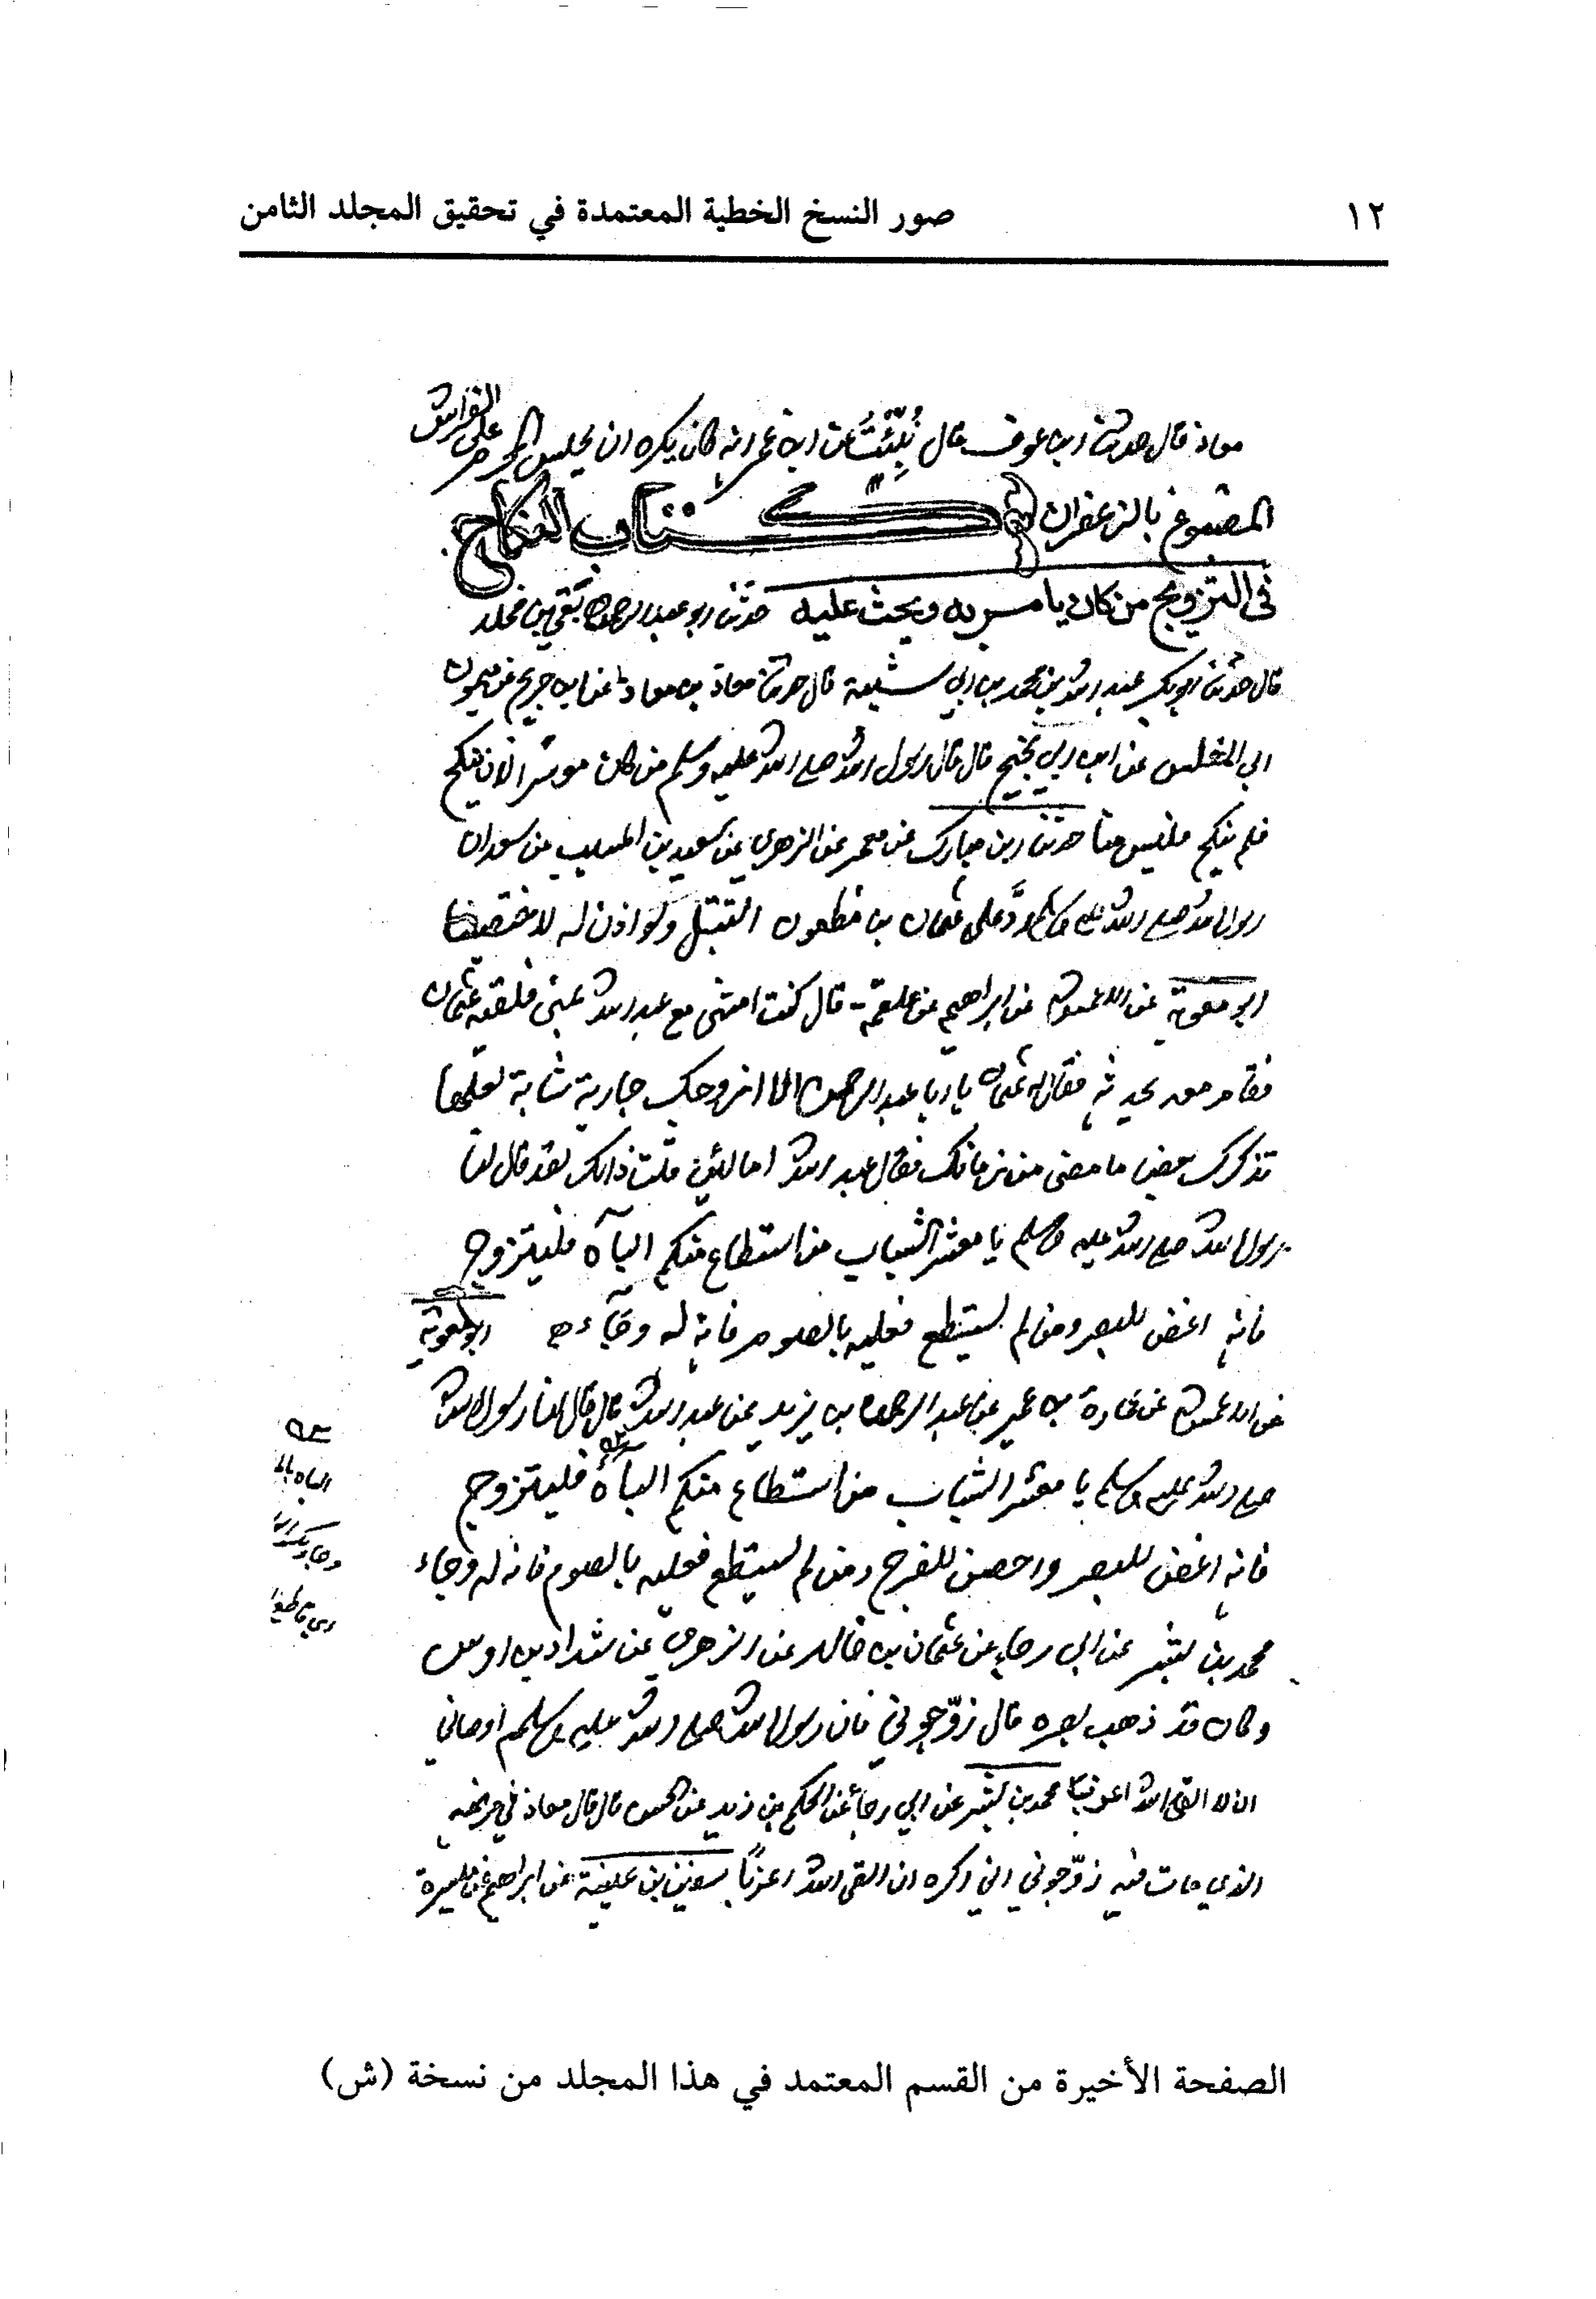 ١٢
صور النسخ الخطية المعتمدة في تحقيق المجلد الثامن
معاذ قال حدثنا ابن عون قال نُبِّئْتُ عن ابن عمر انه كان يكره ان يجلس المحرم على الفراش
المصبوغ بالزعفران كتاب النكاح
في التزويج من كان يامر به ويحث عليه حدثنا ابو عبد الرحمن بقي بن مخلد
قال حدثنا ابو بكر عبد الله بن محمد بن ابي شيبة قال حدثنا معاذ بن معاذ عن ابن جريج عن ميمون
ابي المغلس عن ابن ابي نجيح قال قال رسول الله صلى الله عليه وسلم من كان موسرا لان ينكح
فلم ينكح فليس منا حدثنا ابن مبارك عن معمر عن الزهري عن سعيد بن المسيب عن سعد ان
رسول الله صلى الله عليه وسلم ردَّ على عثمان بن مظعون التبتل ولو اذن له لاختصينا
ابو معوية عن الاعمش عن ابراهيم عن علقمة قال كنت امشي مع عبد الله بمنى فلقيه عثمان
فقام معه يحدثه فقال له عثمان يا ابا عبد الرحمن الا ازوجك جارية شابة لعلها
تذكرك بعض ما مضى من زمانك فقال عبد الله اما لئن قلت ذلك لقد قال لنا
رسول الله صلى الله عليه وسلم يا معشر الشباب من استطاع منكم الباه فليتزوج
فانه اغض للبصر ومن لم يستطع فعليه بالصوم فانه له وجاء ابو معوية
عن الاعمش عن عمارة بن عمير عن عبد الرحمن بن يزيد عن عبد الله قال قال لنا رسول الله
صلى الله عليه وسلم يا معشر الشباب من استطاع منكم الباه فليتزوج
فانه اغض للبصر واحصن للفرج ومن لم يستطع فعليه بالصوم فانه له وجاء
محمد بن بشر عن ابي رجاء عن عثمان بن خالد عن الزهري عن شداد بن اوس
وكان قد ذهب بصره قال زوّجوني فان رسول الله صلى الله عليه وسلم اوصاني
ان لا القى الله اعزبا محمد بن بشر عن ابي رجاء عن الحكم بن زيد عن الحسن قال قال معاذ في مرضه
الذي مات فيه زوّجوني اني اكره ان القى الله اعزبا سفين بن عيينة عن ابراهيم بن ميسرة
الصفحة الأخيرة من القسم المعتمد في هذا المجلد من نسخة (ش)